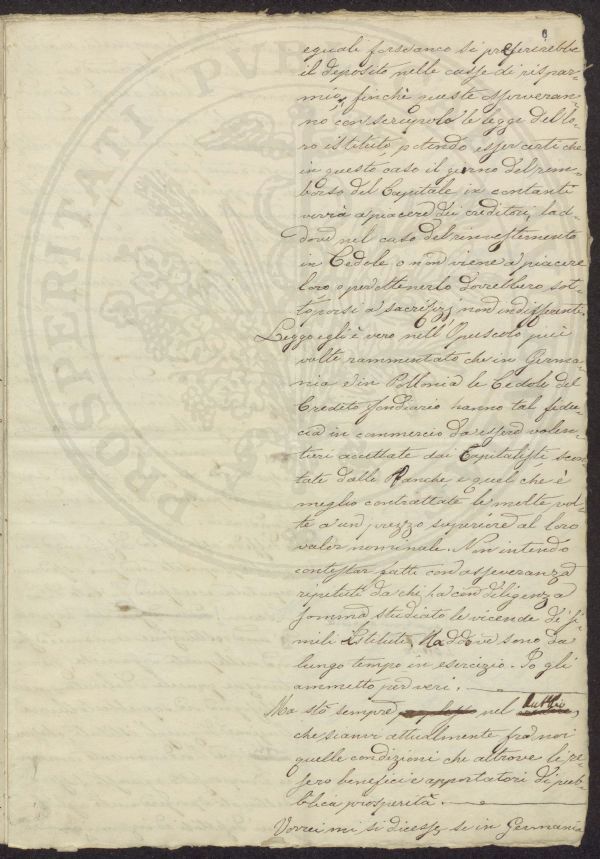 6
eguale forseanco si preferirebbe
il deposito nelle casse di rispar=
mio, finchè queste osserveran=
no con scrupolo le leggi del lo=
ro istituto, potendo esser certi che
in questo caso il giorno del rim=
borso del Capitale in contanti
verrà a piacere dei creditori, lad=
dove nel caso del rinvestimento
in Cedole o non viene a piacere
loro o per ottenerlo dovrebbero sot=
toporsi a sacrifizj non indifferenti.
Leggo egli è vero nell'Opuscolo più
volte rammentato che in Germa=
nia e in Pollonia le Cedole del
Credito fondiario hanno tal fidu=
cia in commercio da essere volen=
tieri accettate dai Capitalisti, scon
tate dalle Banche e quel che è
meglio contrattate le molte vol=
te a un prezzo superiore al loro
valor nominale. Non intendo
contestar fatti con asseveranza
ripetuti da chi ha con diligenza
somma studiato le vicende di si=
mili Istituti, laddove sono da
lungo tempo in esercizio. Io gli
ammetto per veri.
Ma stò sempre nel dubbio,
che sianvi attualmente fra noi
quelle condizioni che altrove li re=
sero benefici e apportatori di pub=
blica prosperità.
Vorrei mi si dicesse se in Germania
PROSPERITATI PUBLI